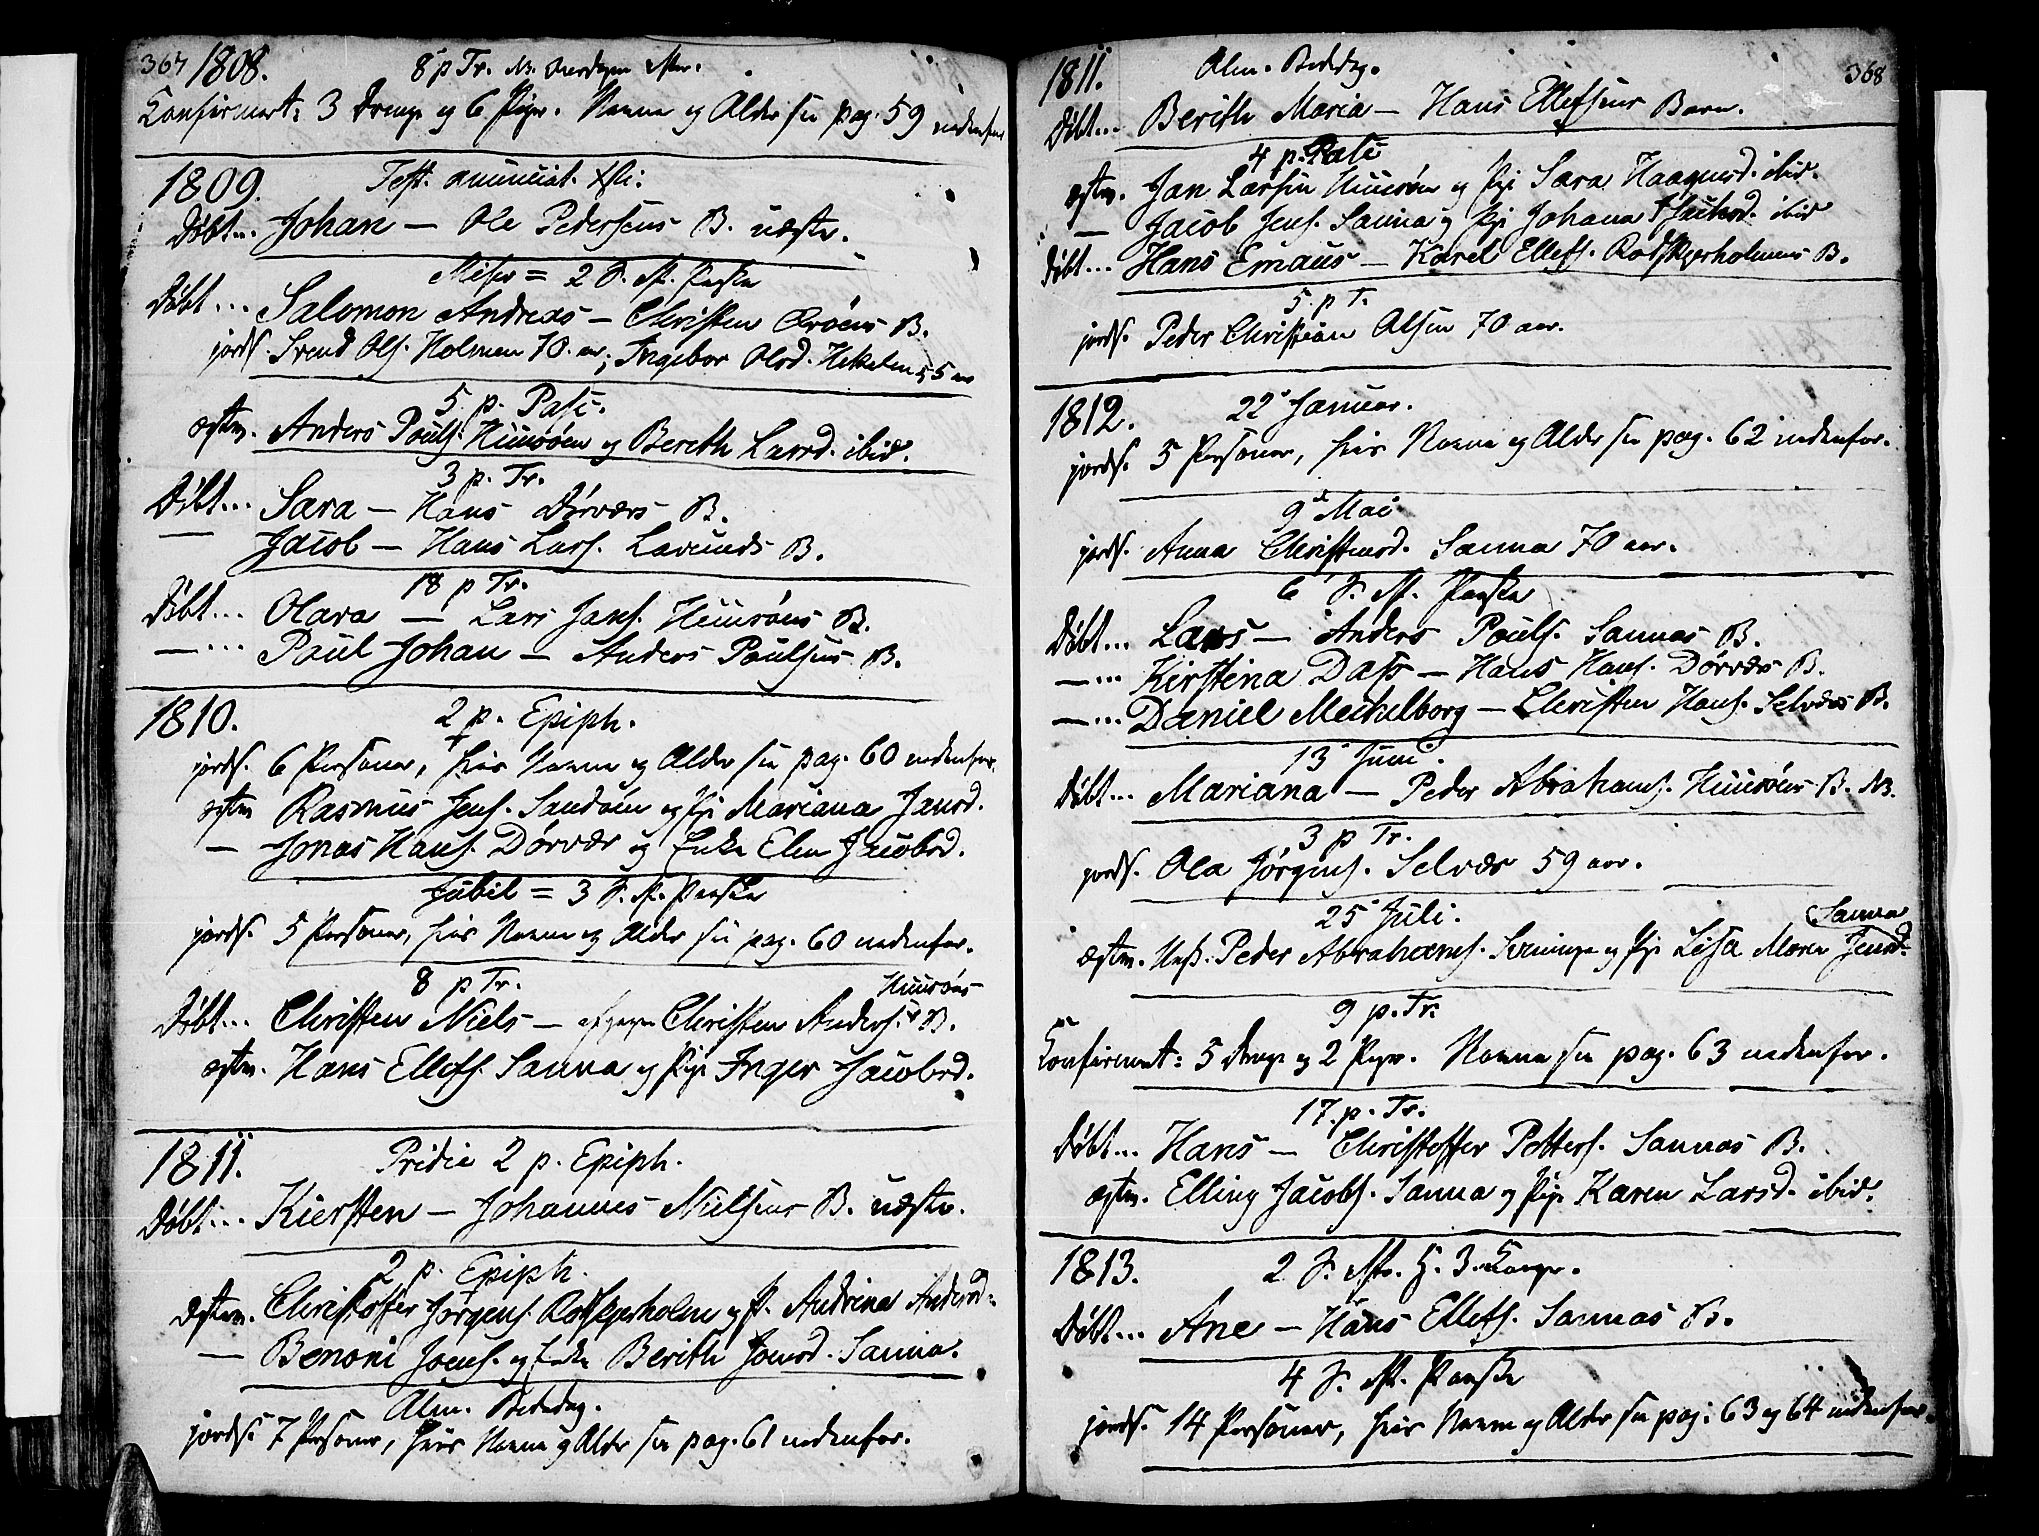 367 1808. 8 p Tr. NB. Søerdagen efter.
Confirmert: 3 Drenge og 6 Piger. Navne og Alder see pag. 59 nedenfor
1809. Fest. anunciat. Xsti:
Døbt... Johan — Ole Pedersens B. uægte.
Miser = 2 S. Ef. Paaske
Døbt... Salomon Andreas — Christen B.
jords. Svend Ols. Holmen 70 ar; Ingebor Olsd. 55 ar
5 p. Pasc.
ægtev. Anders Pouls. Huusøen og Berith Larsd. ibid.
3 p. Tr.
Døbt... Sara — Hans Dörværs B.
— Jacob — Hans Lars. Lovunds B.
18 p Tr.
Døbt... Olava — Lars Jans. Huusøens B.
—... Paul Johan — Anders Poulsens B.
1810. 2 p. Epiph.
jords. 6 Personer, hvis Navne og Alder see pag. 60 nedenfor.
ægtev Rasmus Jens. Sandøen og Pige Mariana Jansd.
— Jonas Hans. Dörvær og Enke Elen Jacobsd.
Jubil = 3 S. Ef. Paaske
jords. 5 Personer, hvis Navne og Alder see pag. 60 nedenfor.
8 p Tr.
Huusøens
Døbt... Christen Niels — Christen Anders. B.
ægtev. Hans Ellefs. Sanna og Pige Inger Jacobsd.
1811. Pridie 2 p. Epiph.
Døbt... Kiersten — Johannes Nielsens B. uægte.
2 p. Epiph.
ægtev. Christoffer Jørgens. Rødskjerholm og P. Andrina Andersd.
— Benoni Joens. og Enke Berith Joensd. Sanna.
Alm. Bededag.
jords. 7 Personer, hvis Navne og Alder see pag. 61 nedenfor.
1811. Alm. Bededag. 368
Døbt... Berith Maria — Hans Ellefsens Barn.
4 p. Pasc
ægtev. Jan Larsen Huusøen og Pige Sara Haagensd. ibid.
— Jacob Jens. Sanna og Pige Johana ibid
Døbt... Hans Emaus — Karel Ellefs. Rødskjerholmens B.
5 p T.
jords. Peder Christian Olsen 70 aar.
1812. 22 Januar.
jords. 5 Personer, hvis Navne og Alder see pag. 62 nedenfor.
9de Mai
jords. Anna Christensd. Sanna 70 aar.
6 S. Ef. Paaske
Døbt... Lars — Anders Pouls. Sannas B.
—... Kirstina Dass — Hans Hans. Dörvær B.
—... Daniel Meckelborg — Christen Hans. Selvær B.
13 Juni.
Døbt... Mariana — Peder Abrahams. Huusøens B. NB.
3 p Tr.
jords. Ola Jörgens. Selvær 59 aar.
25 Juli.
Sanna
ægtev. Unk. Peder Abrahams. og Pige Lisa Maria Jensd.
9 p. Tr.
Confirmert: 5 Drenge og 2 Piger. Navne see pag. 63 nedenfor.
17 p. Tr.
Døbt... Hans — Christoffer Petters. Sannas B.
ægtev. Elling Jacobs. Sanna og Pige Karen Larsd. ibid.
1813. 2 S. Ef. H. 3 Konger.
Døbt... Ane — Hans Ellefs. Sannas B.
4 S. Ef. Paaske
jords. 14 Personer, hvis Navne og Alder see pag: 63 og 64 nedenfor.